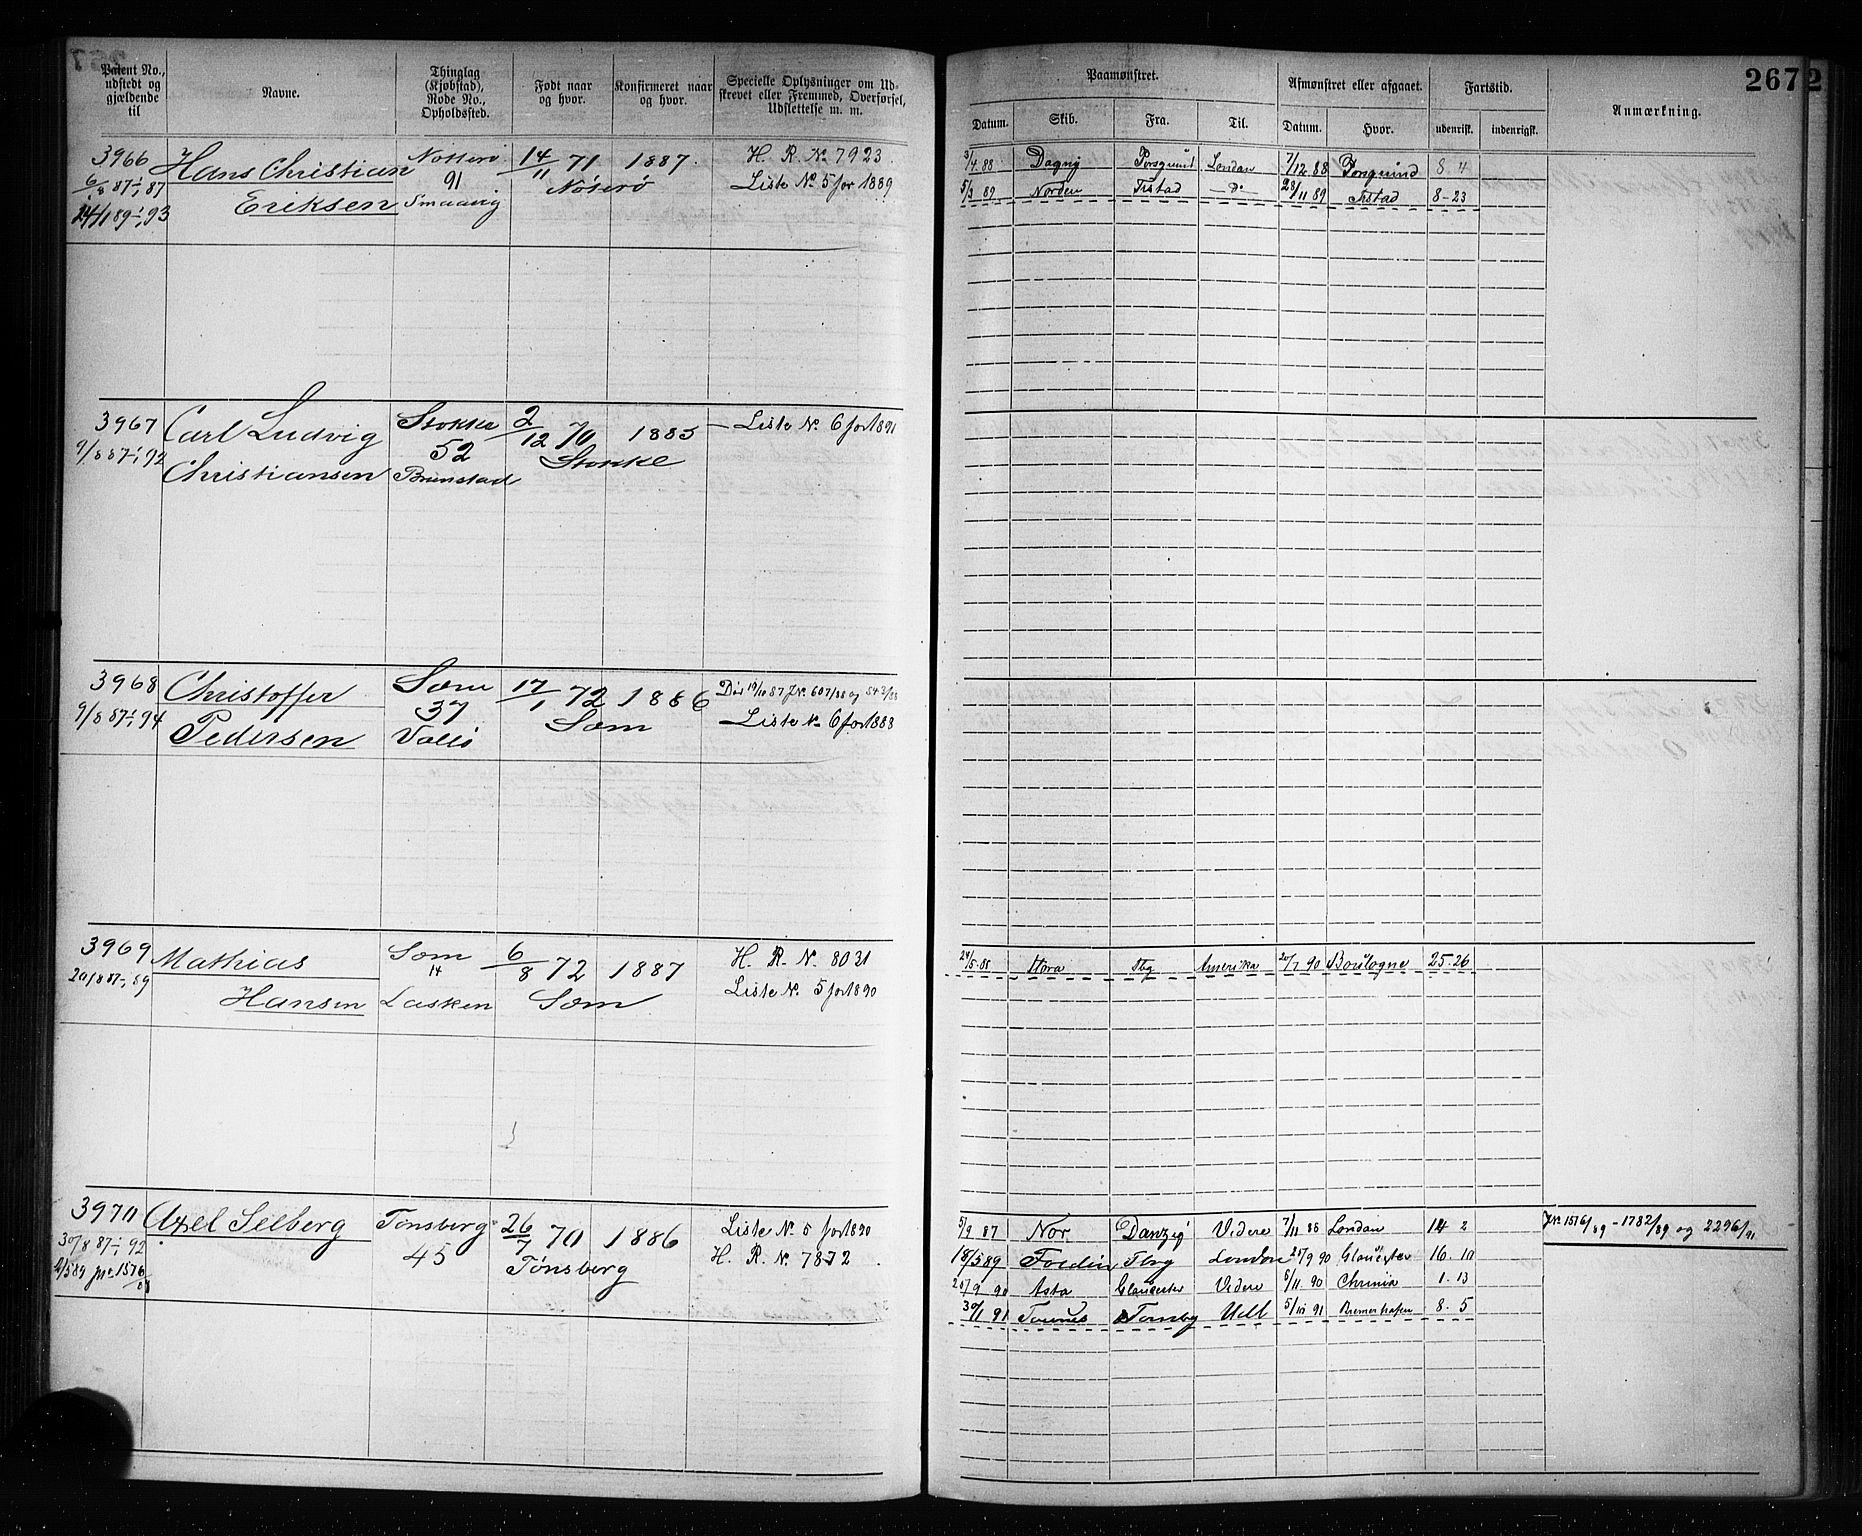 Patent No., udstedt og gjældende til
Navne.
Thinglag (Kjøbstad), Rode No., Opholdssted.
Født naar og hvor.
Konfirmeret naar og hvor.
Specielle Oplysninger om Udskrevet eller Fremmed, Overførsel, Udslettelse m. m.
Paamønstret.
Datum.
Skib.
Fra.
Til.
Afmønstret eller afgaaet.
Datum.
Hvor.
Fartstid.
udenrigsk.
indenrigsk.
Anmærkning.
267
2
3966
6/8 87 ÷ 87
24/1 89 ÷ 93
Hans Christian
Eriksen
Nøtterø
91
Smaavig
14/11 71
Nøterø
1887.
H. R. No 7923.
Liste No 5 for 1889
3/4 88 Dagny Porsgrund London 7/12 88 Porsgrund 8 4
5/3 89 Norden Frstad —Do 28/11 89 Frstad 8-23
3967
9/8 87 ÷ 92
Carl Ludvig
Christiansen
Stokke
52
Brunstad
2/12 70
Stokke
1885
— Liste No. 6 for 1891
3968
9/8 87 ÷ 94
Christoffer
Pedersen
Sæm
37
Vallø
17/1 72
Sæm
1886
Liste No 6 for 1888
3969
20/8 87 ÷ 89
Mathias
Hansen
Sæm
14
Lasken
6/8 72
Sæm
1887
H. R. N. 8031
Liste No. 5 for 1890
Hora Tbg Amerika 90 Boulogne 25-26
3970
30/8 87 ÷ 92
Jno 1576
Axel Selberg
Tønsberg
45
26/7 70
Tønsberg
1886
Liste No. 5 for 1890
H. R. N. 7872
5/9 87 Nor Danzig Videre 7/11 88 London 14 2
18/5 89 Tbrg London 9 90 Gloucester 16. 10
9 90 Asta Gloucester Videre 6/11. 90 Chrinia 1. 13
30/1 91 Tønsbg Udl 5/10 91 Bremerhafen 8. 5
J.No 1576/89 - 1782/89 og 2296/91